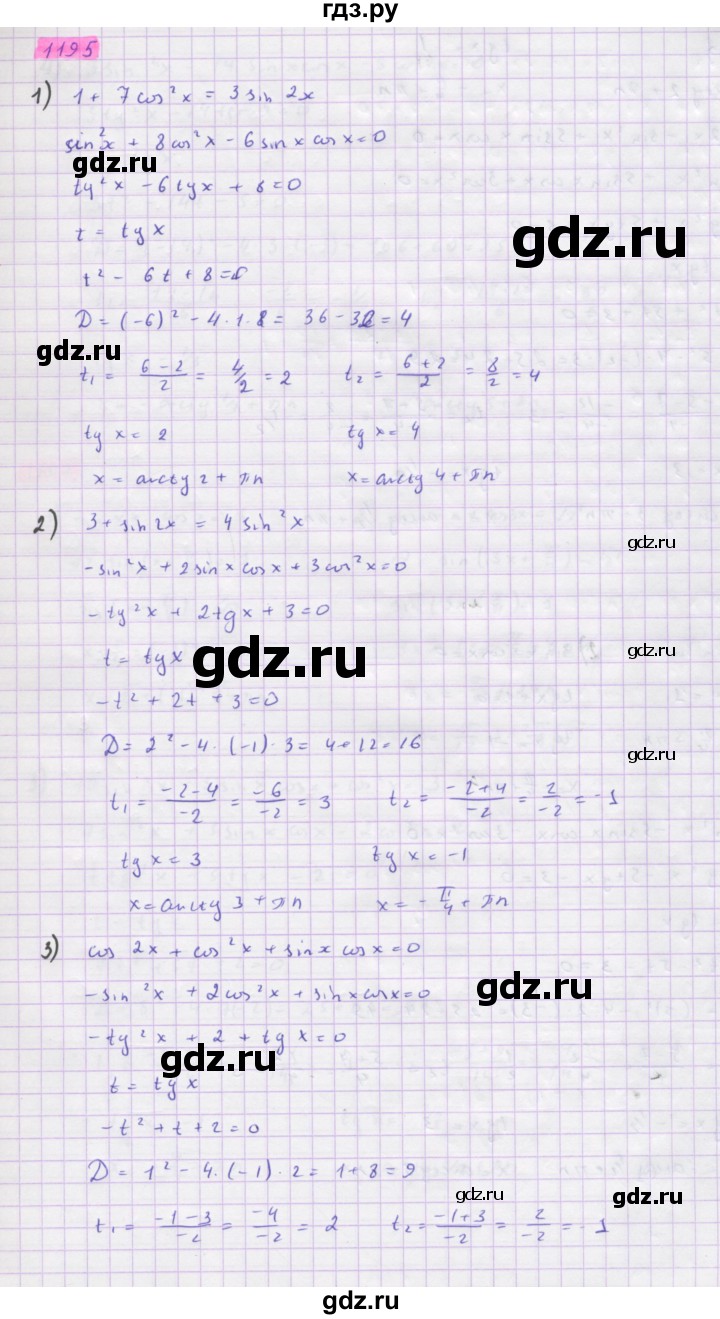 гдз.ру
1195
1) 1 + 7 cos² x = 3 sin 2x
sin² x + 8 cos² x - 6 sin x cos x = 0
gdz.ru
tg² x - 6 tg x + 8 = 0
t = tg x
gdz.ru
t² - 6t + 8 = 0
D = (-6)² - 4·1·8 = 36 - 32 = 4
gdz.ru
t₁ = (6 - 2)/2 = 4/2 = 2 t₂ = (6 + 2)/2 = 8/2 = 4
tg x = 2 tg x = 4
x = arctg 2 + πn x = arctg 4 + πn
2) 3 + sin 2x = 4 sin² x
gdz.ru
- sin² x + 2 sin x cos x + 3 cos² x = 0
- tg² x + 2 tg x + 3 = 0
t = tg x
gdz.ru
gdz.ru
- t² + 2t + 3 = 0
D = 2² - 4·(-1)·3 = 4 + 12 = 16
gdz.ru
t₁ = (-2 - 4)/-2 = -6/-2 = 3 t₂ = (-2 + 4)/-2 = 2/-2 = -1
tg x = 3 tg x = -1
x = arctg 3 + πn x = - π/4 + πn
3) cos 2x + cos² x + sin x cos x = 0
- sin² x + 2 cos² x + sin x cos x = 0
gdz.ru
- tg² x + 2 + tg x = 0
gdz.ru
t = tg x
- t² + t + 2 = 0
D = 1² - 4·(-1)·2 = 1 + 8 = 9
gdz.ru
gdz.ru
t₁ = (-1 - 3)/-2 = -4/-2 = 2 t₂ = (-1 + 3)/-2 = 2/-2 = -1
gdz.ru
gdz.ru
gdz.ru